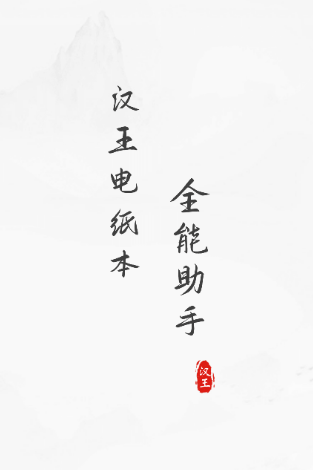 汉王电纸本
全能助手
汉王